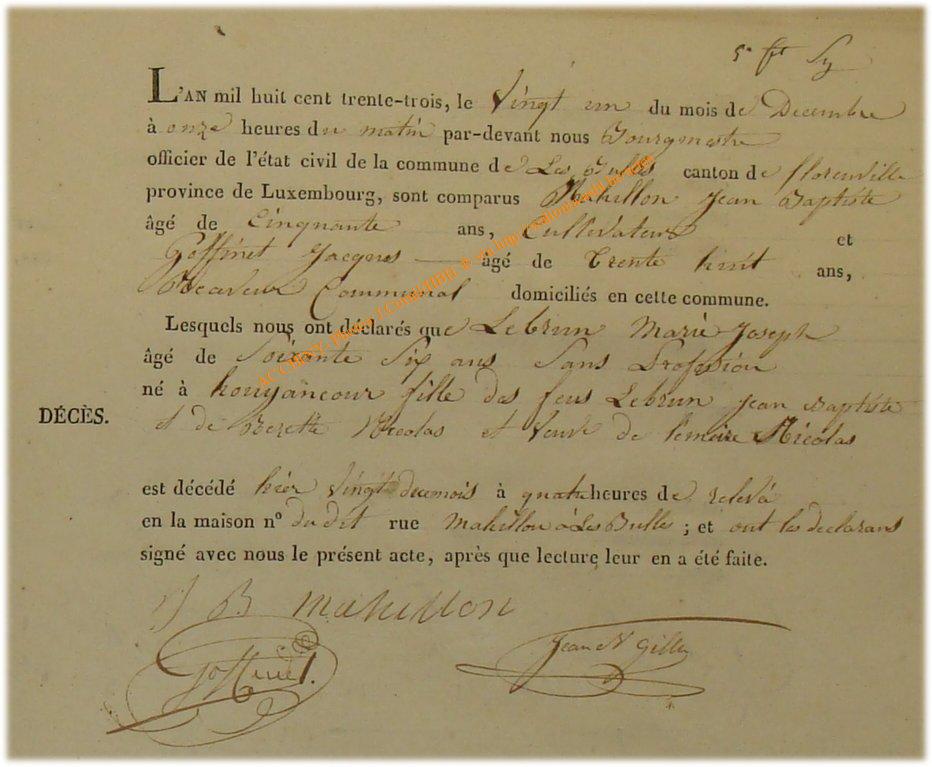 L'AN mil huit cent trente-trois, le Vingt un du mois de Decembre
à onze heures du matin par-devant nous Bourgmestre
officier de l'état civil de la commune de Les Bulles canton de florenville
province de Luxembourg, sont comparus Mahillon Jean Baptiste
âgé de Cinquante ans, Cultivateur et
Goffinet Jacques âgé de trente huit ans,
Receveur Communal domiciliés en cette commune.
Lesquels nous ont déclarés que Lebrun Marie Joseph
âgé de Soixante Six ans Sans Profession
né à fille des feus Lebrun Jean Baptiste
DÉCÈS.
et de Nicolas et Veuve de Nicolas
est décédé hier Vingt du mois à quatre heures de relevé
en la maison nº du dit rue Mahillon à Les Bulles ; et ont les declarans
signé avec nous le présent acte, après que lecture leur en a été faite.
J B Mahillon
Goffinet.
Jean N Gille